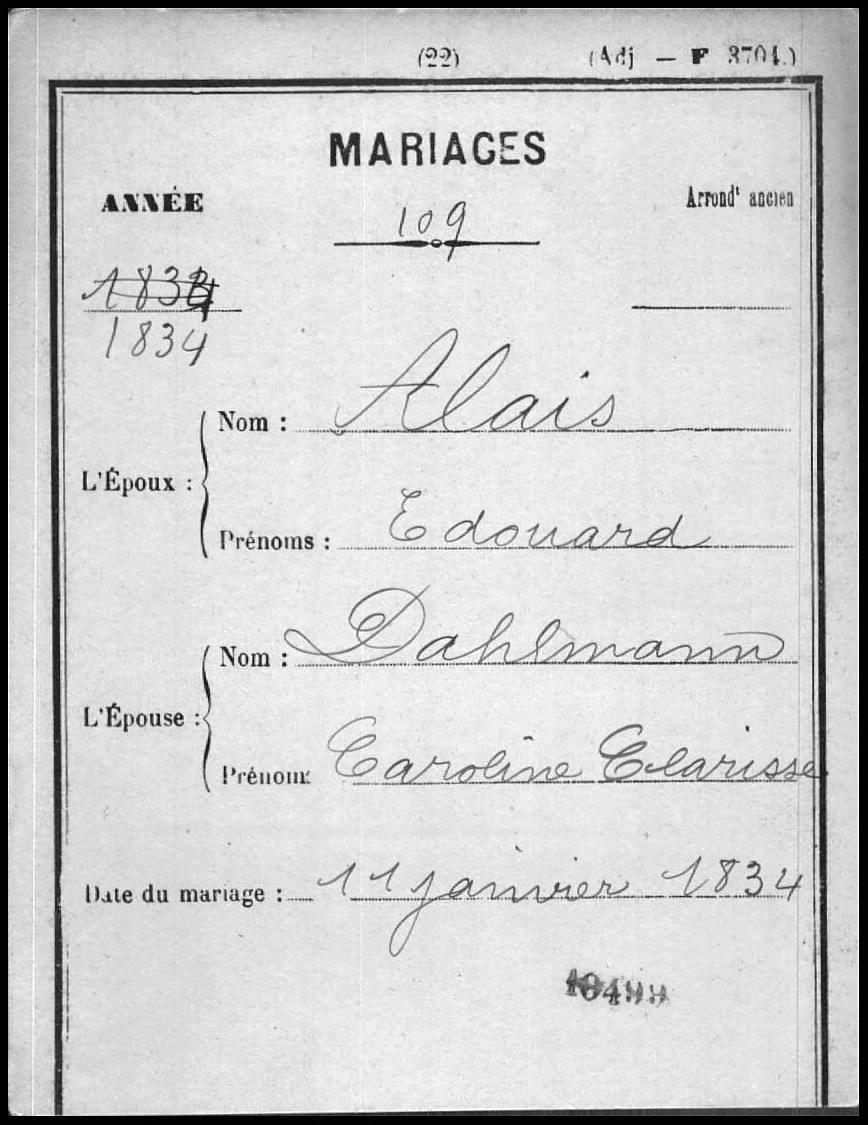 (22) (Adj — F 3704.)
MARIAGES
ANNÉE
Arrondt ancien
109
1834
1834
L'Époux :
Nom : Alais
Prénoms : Edouard
L'Épouse :
Nom : Dahlmann
Prénoms Caroline Clarisse
Date du mariage : 11 janvier 1834